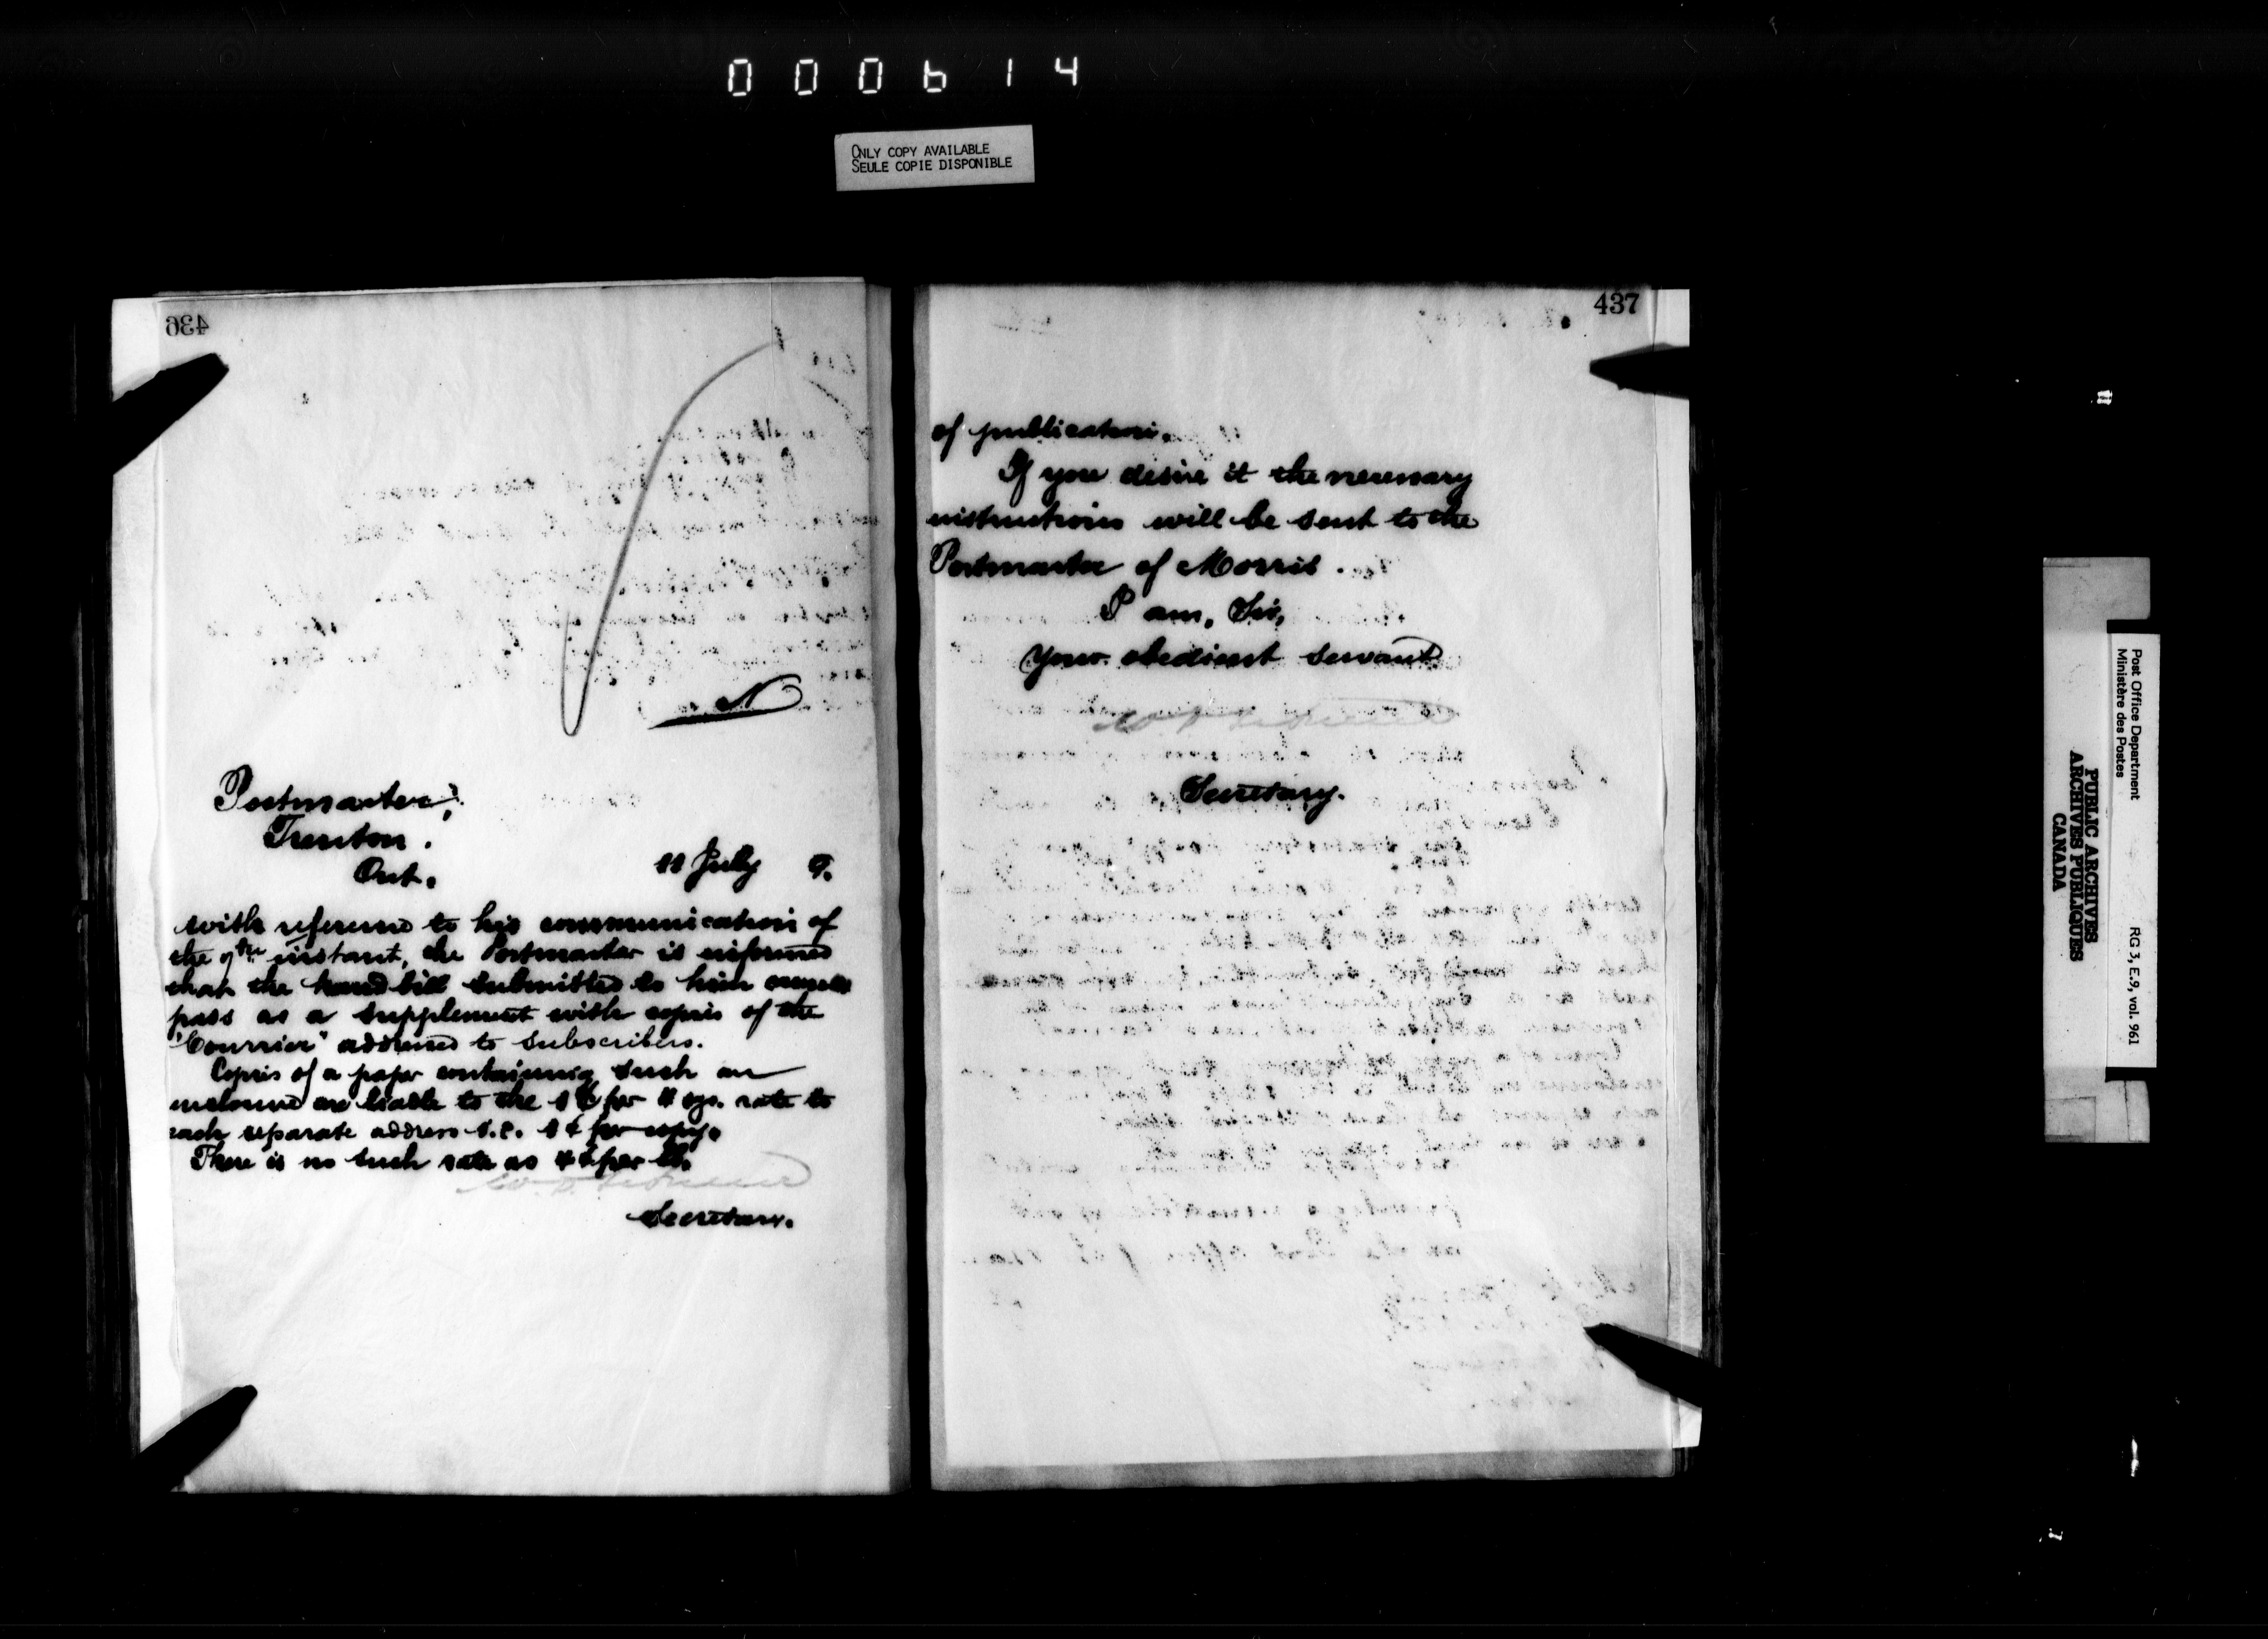 000614
ONLY COPY AVAILABLE
SEULE COPIE DISPONIBLE
436
N
Postmaster,
Trenton.
Ont.
11 July 9.
With reference to his communication of
the 9th instant, the Postmaster is informed
that the hand bill submitted to him cannot
pass as a supplement with copies of the
"Courrier" addressed to subscribers.
Copies of a paper containing such an
inclosure are liable to the 1¢ per 4 ozs. rate to
each separate address i.e. 1¢ per copy.
There is no such rate as 4¢ per lb.
Secretary.
437
of publication.
If you desire it the necessary
instructions will be sent to the
Postmaster of Morris.
I am, Sir,
Your obedient servant.
Secretary.
Post Office Department
Ministère des Postes
RG 3, E.9, vol. 961
PUBLIC ARCHIVES
ARCHIVES PUBLIQUES
CANADA